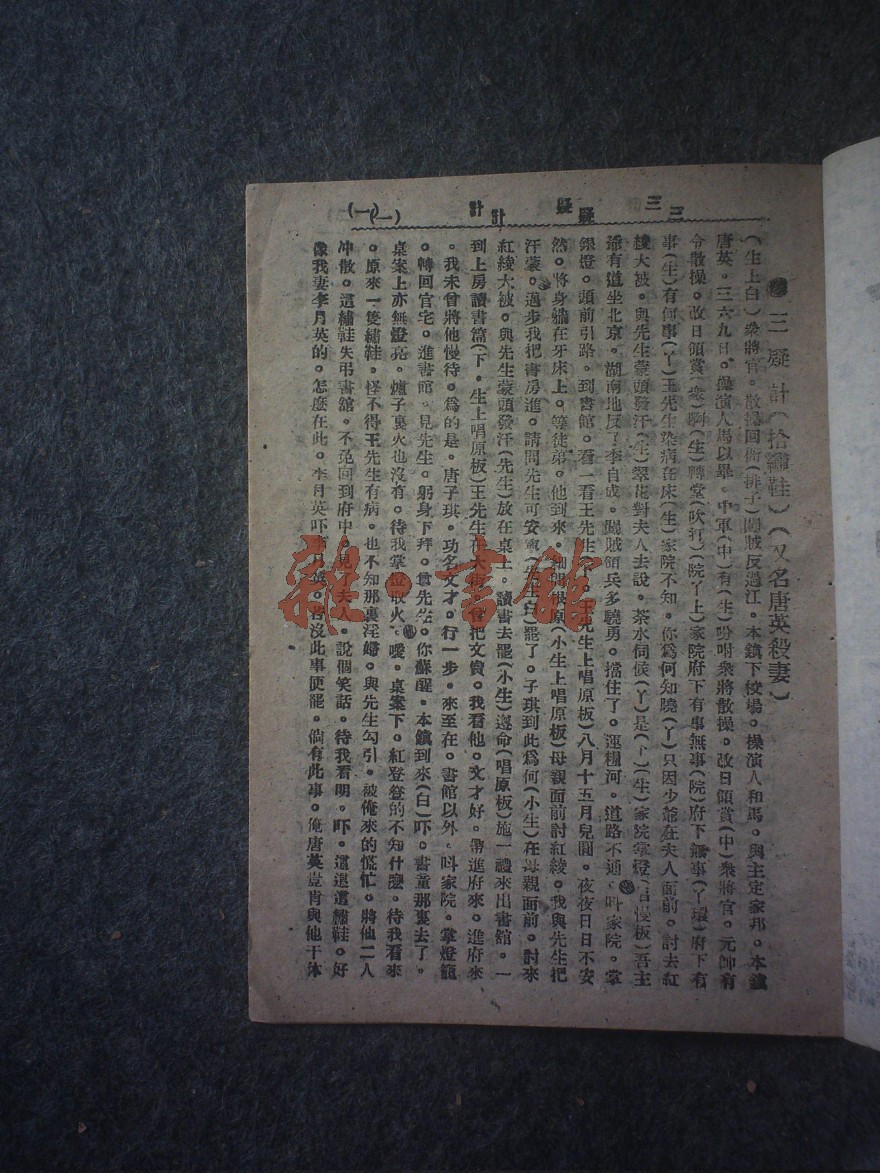 三疑計
(一)
三疑計(拾繡鞋)(又名唐英殺妻)
(生上白)衆將官。散操回衙(排子)闖賊反過江。本鎮下校場。操演人和馬。與主定家邦。本鎮
唐英。三六九日。操演人馬以畢。中軍(中)有(生)吩咐衆將散操。改日領賞(中)衆將官。元帥有
令散操。改日領賞(衆)啊(生)轉堂(吹)(院丫上)家院府下有事無事(院)府下無事(丫環)府下有
事(生)有何事(丫)王先生染病在床(生)家院不知。你爲何知曉(丫)只因少爺在夫人面前。討去紅
綾大被。與先生蒙頭發汗(生)翠花對夫人去說。茶水伺候(丫)是(下)(生)家院掌燈(唱慢板)吾主
爺有道坐北京。湖南地反了李自成。闖賊領兵多驍勇。擋住了。運糧河。道路不通。叫家院。掌
銀燈。頭前引路。到書館。看一看王先生(下)(王先生上唱原板)八月十五月兒圓。夜夜日日不安
然。將身躺在牙床上。等徒弟。他到來。細問根原(小生上唱原板)母親面前討紅綾。我與先生把
汗蒙。邁步我把書房進。請問先生可安寧(先生白)罷了。子琪到此爲何(小生)在母親面前。討來
紅綾大被。與先生蒙頭發汗(先生)放在桌上。讀書去罷(小生)遵命(唱原板)施一禮來出書舘。一
到上房讀書篇(下。生上唱原板)王先生在大街。會把文賣。我看他。文才好。帶進府來。進府來
。我未曾將他慢待。爲的是。唐子琪。功名文才。行一步。來至在。書館以外。叫家院。掌燈籠
。轉回官宅。進書館。見先生。躬身下拜。王先生。你蘇醒。本鎮到來(白)吓。書童那裏去了。
桌案上亦無燈亮。爐子裏火也沒有。待我掌燈取火。噯。桌案下。紅登登的不知什麽。待我看來
。原來一隻繡鞋。怪不得王先生有病。也不知那裏淫婦。與先生勾引。被俺來的慌忙。將他二人
冲散。這繡鞋失弔書舘。不免回到府中。見了夫人。說個笑話。待我看明。吓。這這這繡鞋。好
像我妻李月英的。怎麽在此。李月英吓李月英。若沒此事便罷。倘有此事。俺唐英豈肯與他干休
雜·書館